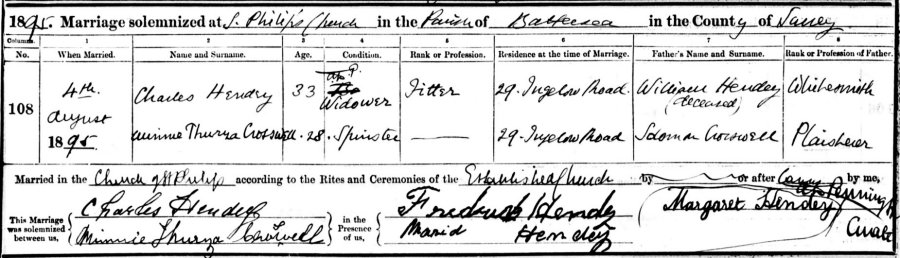 1895. Marriage solemnized at S. Philip's Church in the Parish of Battersea in the County of Surrey
Columns:— 1 2 3 4 5 6 7 8
No. When Married. Name and Surname. Age. Condition. Rank or Profession. Residence at the time of Marriage. Father's Name and Surname. Rank or Profession of Father.
108
4th August 1895.
Charles Hendey 33 Widower Fitter 29. Ingelow Road. William Hendey (deceased) Whitesmith
Minnie Thurza Crosswell. 28. Spinster —— 29. Ingelow Road Solomon Crosswell Plaisterer
Married in the Church of St Philip according to the Rites and Ceremonies of the Established Church by or after Banns by me,
This Marriage was solemnized between us,
Charles Hendey
Minnie Thurza Crosswell
in the Presence of us,
Frederick Hendey
Hendey
Margaret Hendey
Curate